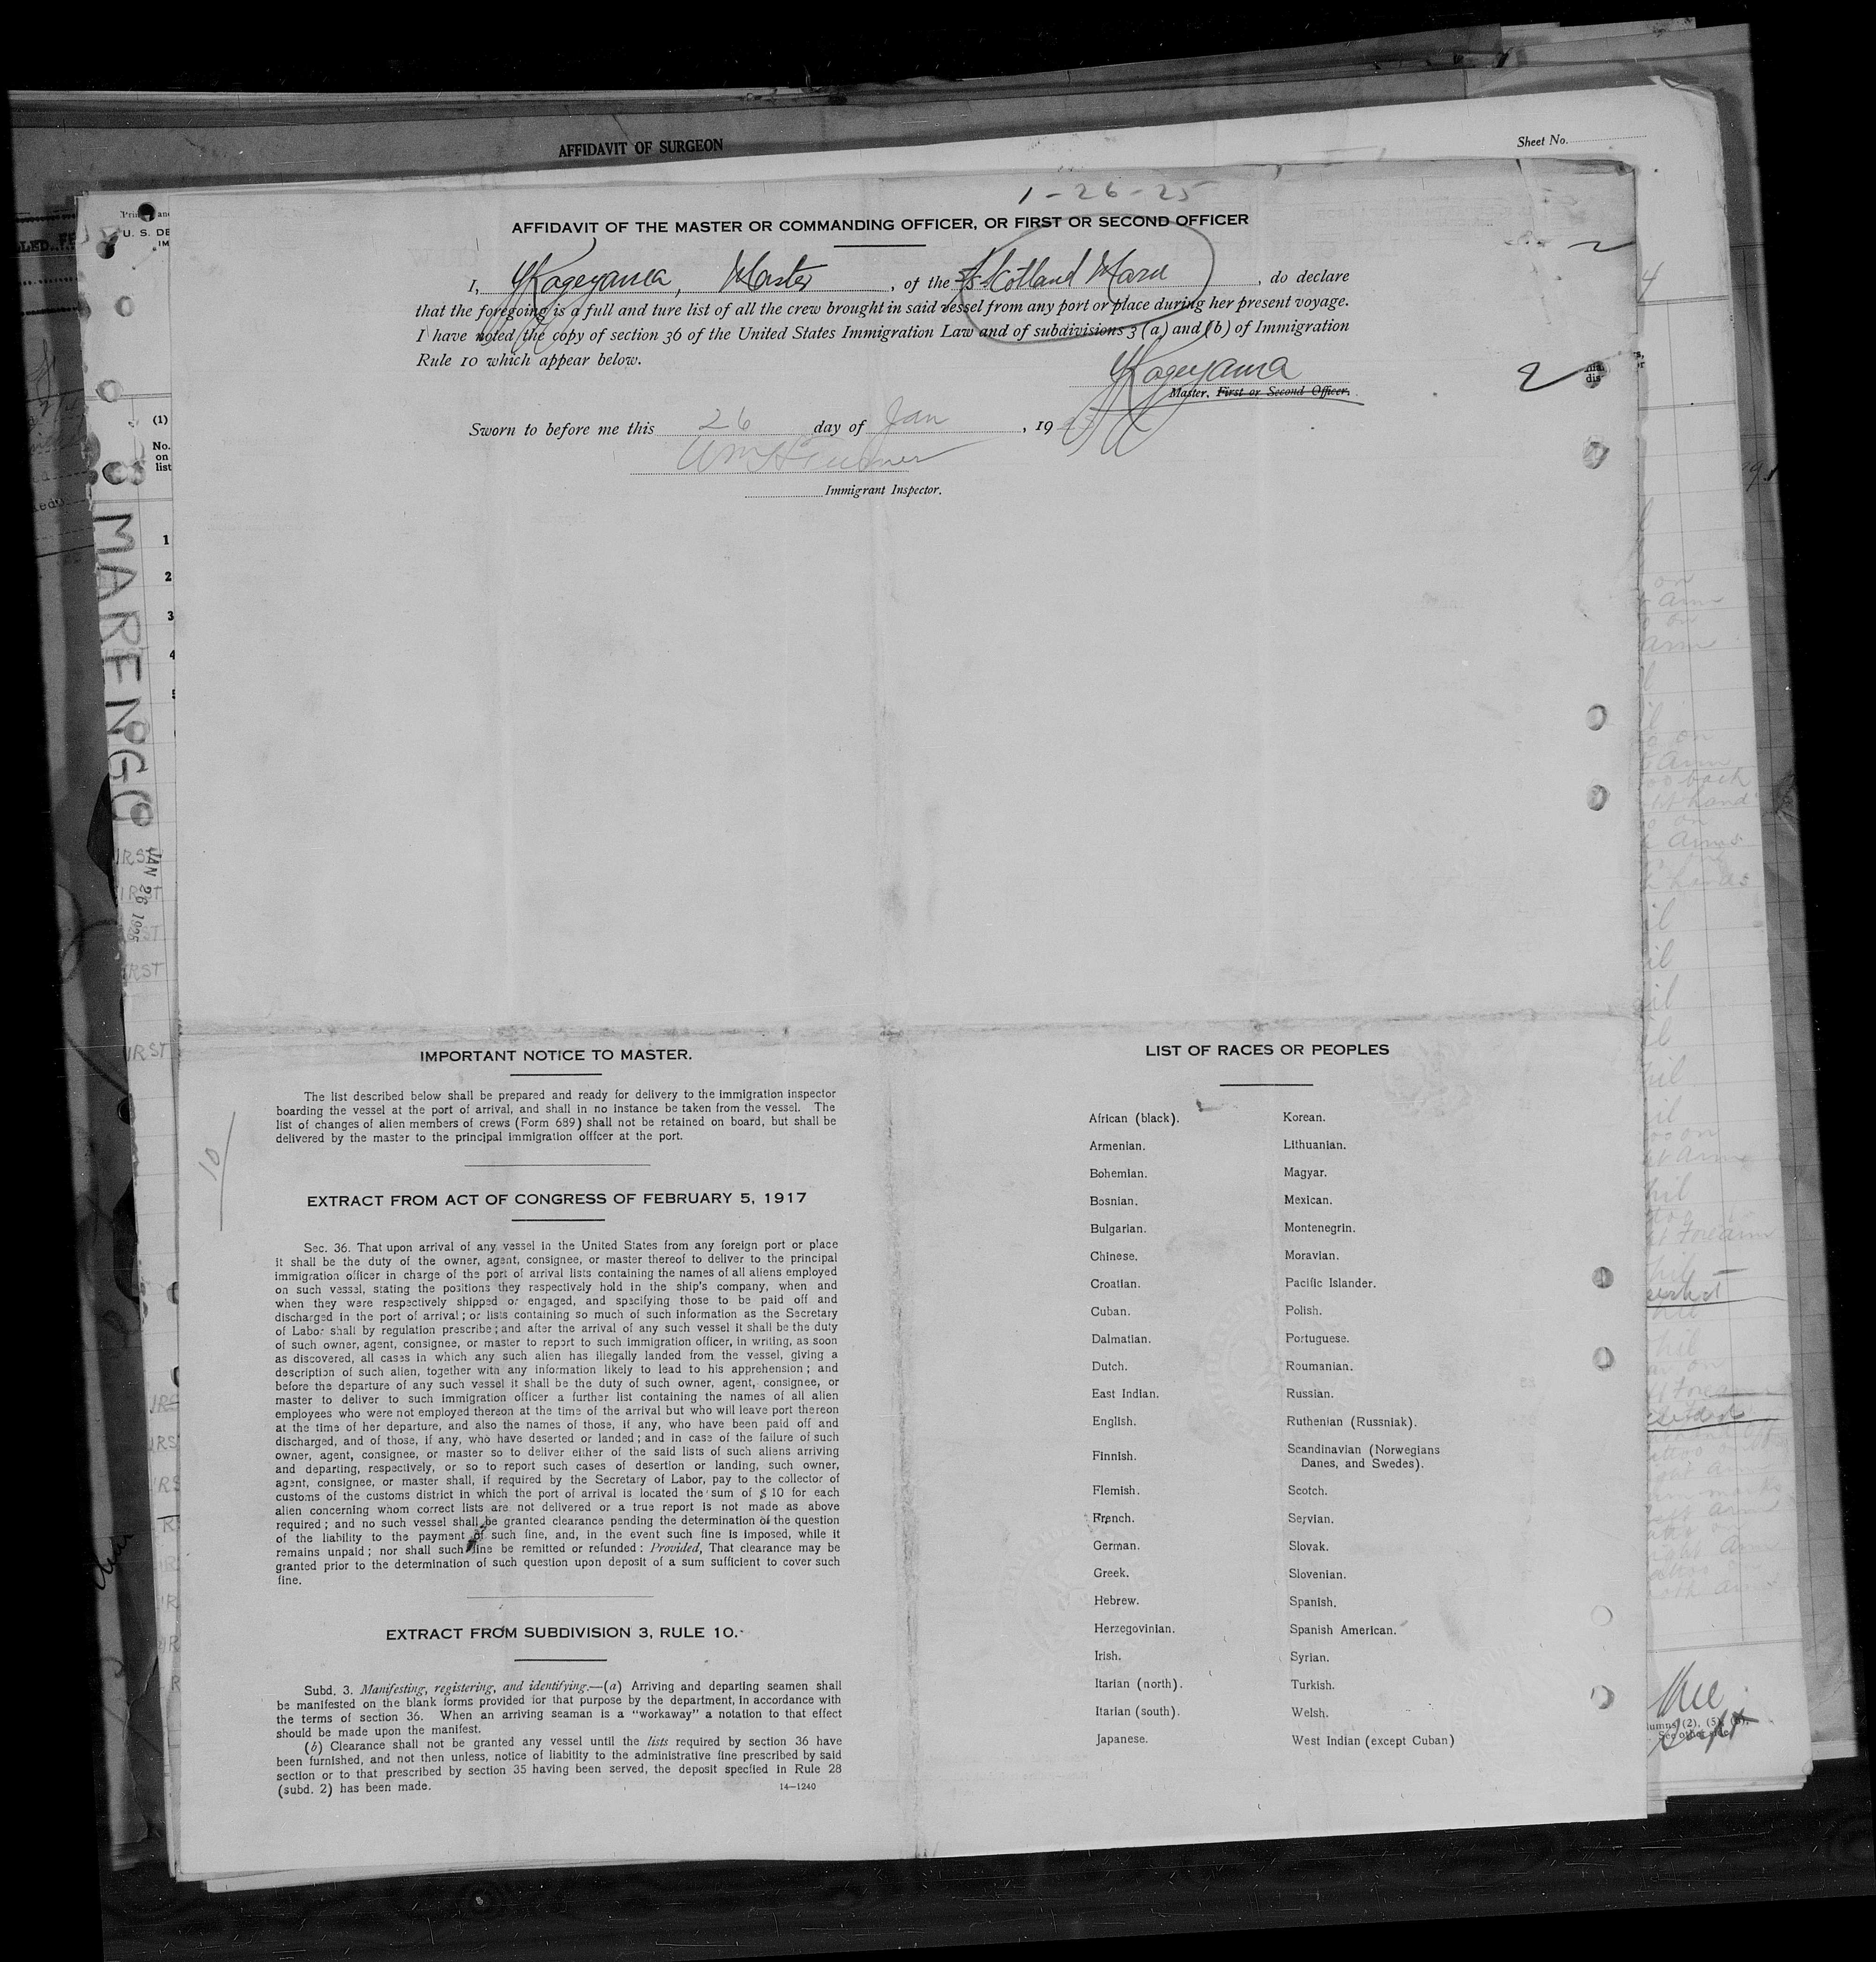 AFFIDAVIT OF SURGEON
Sheet No.
1-26-25
AFFIDAVIT OF THE MASTER OR COMMANDING OFFICER, OR FIRST OR SECOND OFFICER
I, Y Kageyama, Master, of the S/S Scotland Maru, do declare
that the foregoing is a full and ture list of all the crew brought in said vessel from any port or place during her present voyage.
I have noted the copy of section 36 of the United States Immigration Law and of subdivisions 3 (a) and (b) of Immigration
Rule 10 which appear below.
Y Kageyama
Master, First or Second Officer.
2
Sworn to before me this 26 day of Jan, 19
Immigrant Inspector.
U. S. DE
(1)
No.
on
list
1
2
3
4
5
MARENGO
JAN 26 1925
10
IMPORTANT NOTICE TO MASTER.
The list described below shall be prepared and ready for delivery to the immigration inspector
boarding the vessel at the port of arrival, and shall in no instance be taken from the vessel. The
list of changes of alien members of crews (Form 689) shall not be retained on board, but shall be
delivered by the master to the principal immigration officer at the port.
EXTRACT FROM ACT OF CONGRESS OF FEBRUARY 5, 1917
Sec. 36. That upon arrival of any vessel in the United States from any foreign port or place
it shall be the duty of the owner, agent, consignee, or master thereof to deliver to the principal
immigration officer in charge of the port of arrival lists containing the names of all aliens employed
on such vessel, stating the positions they respectively hold in the ship's company, when and
when they were respectively shipped or engaged, and specifying those to be paid off and
discharged in the port of arrival; or lists containing so much of such information as the Secretary
of Labor shall by regulation prescribe; and after the arrival of any such vessel it shall be the duty
of such owner, agent, consignee, or master to report to such immigration officer, in writing, as soon
as discovered, all cases in which any such alien has illegally landed from the vessel, giving a
description of such alien, together with any information likely to lead to his apprehension; and
before the departure of any such vessel it shall be the duty of such owner, agent, consignee, or
master to deliver to such immigration officer a further list containing the names of all alien
employees who were not employed thereon at the time of the arrival but who will leave port thereon
at the time of her departure, and also the names of those, if any, who have been paid off and
discharged, and of those, if any, who have deserted or landed; and in case of the failure of such
owner, agent, consignee, or master so to deliver either of the said lists of such aliens arriving
and departing, respectively, or so to report such cases of desertion or landing, such owner,
agent, consignee, or master shall, if required by the Secretary of Labor, pay to the collector of
customs of the customs district in which the port of arrival is located the sum of $ 10 for each
alien concerning whom correct lists are not delivered or a true report is not made as above
required; and no such vessel shall be granted clearance pending the determination of the question
of the liability to the payment of such fine, and, in the event such fine is imposed, while it
remains unpaid; nor shall such fine be remitted or refunded: Provided, That clearance may be
granted prior to the determination of such question upon deposit of a sum sufficient to cover such
fine.
EXTRACT FROM SUBDIVISION 3, RULE 10.
Subd. 3. Manifesting, registering, and identifying.—(a) Arriving and departing seamen shall
be manifested on the blank forms provided for that purpose by the department, in accordance with
the terms of section 36. When an arriving seaman is a "workaway" a notation to that effect
should be made upon the manifest.
(b) Clearance shall not be granted any vessel until the lists required by section 36 have
been furnished, and not then unless, notice of liability to the administrative fine prescribed by said
section or to that prescribed by section 35 having been served, the deposit specfied in Rule 28
(subd. 2) has been made.
14—1240
LIST OF RACES OR PEOPLES
African (black).
Armenian.
Bohemian.
Bosnian.
Bulgarian.
Chinese.
Croatian.
Cuban.
Dalmatian.
Dutch.
East Indian.
English.
Finnish.
Flemish.
French.
German.
Greek.
Hebrew.
Herzegovinian.
Irish.
Itarian (north).
Itarian (south).
Japanese.
Korean.
Lithuanian.
Magyar.
Mexican.
Montenegrin.
Moravian.
Pacific Islander.
Polish.
Portuguese.
Roumanian.
Russian.
Ruthenian (Russniak).
Scandinavian (Norwegians
Danes, and Swedes).
Scotch.
Servian.
Slovak.
Slovenian.
Spanish.
Spanish American.
Syrian.
Turkish.
Welsh.
West Indian (except Cuban)